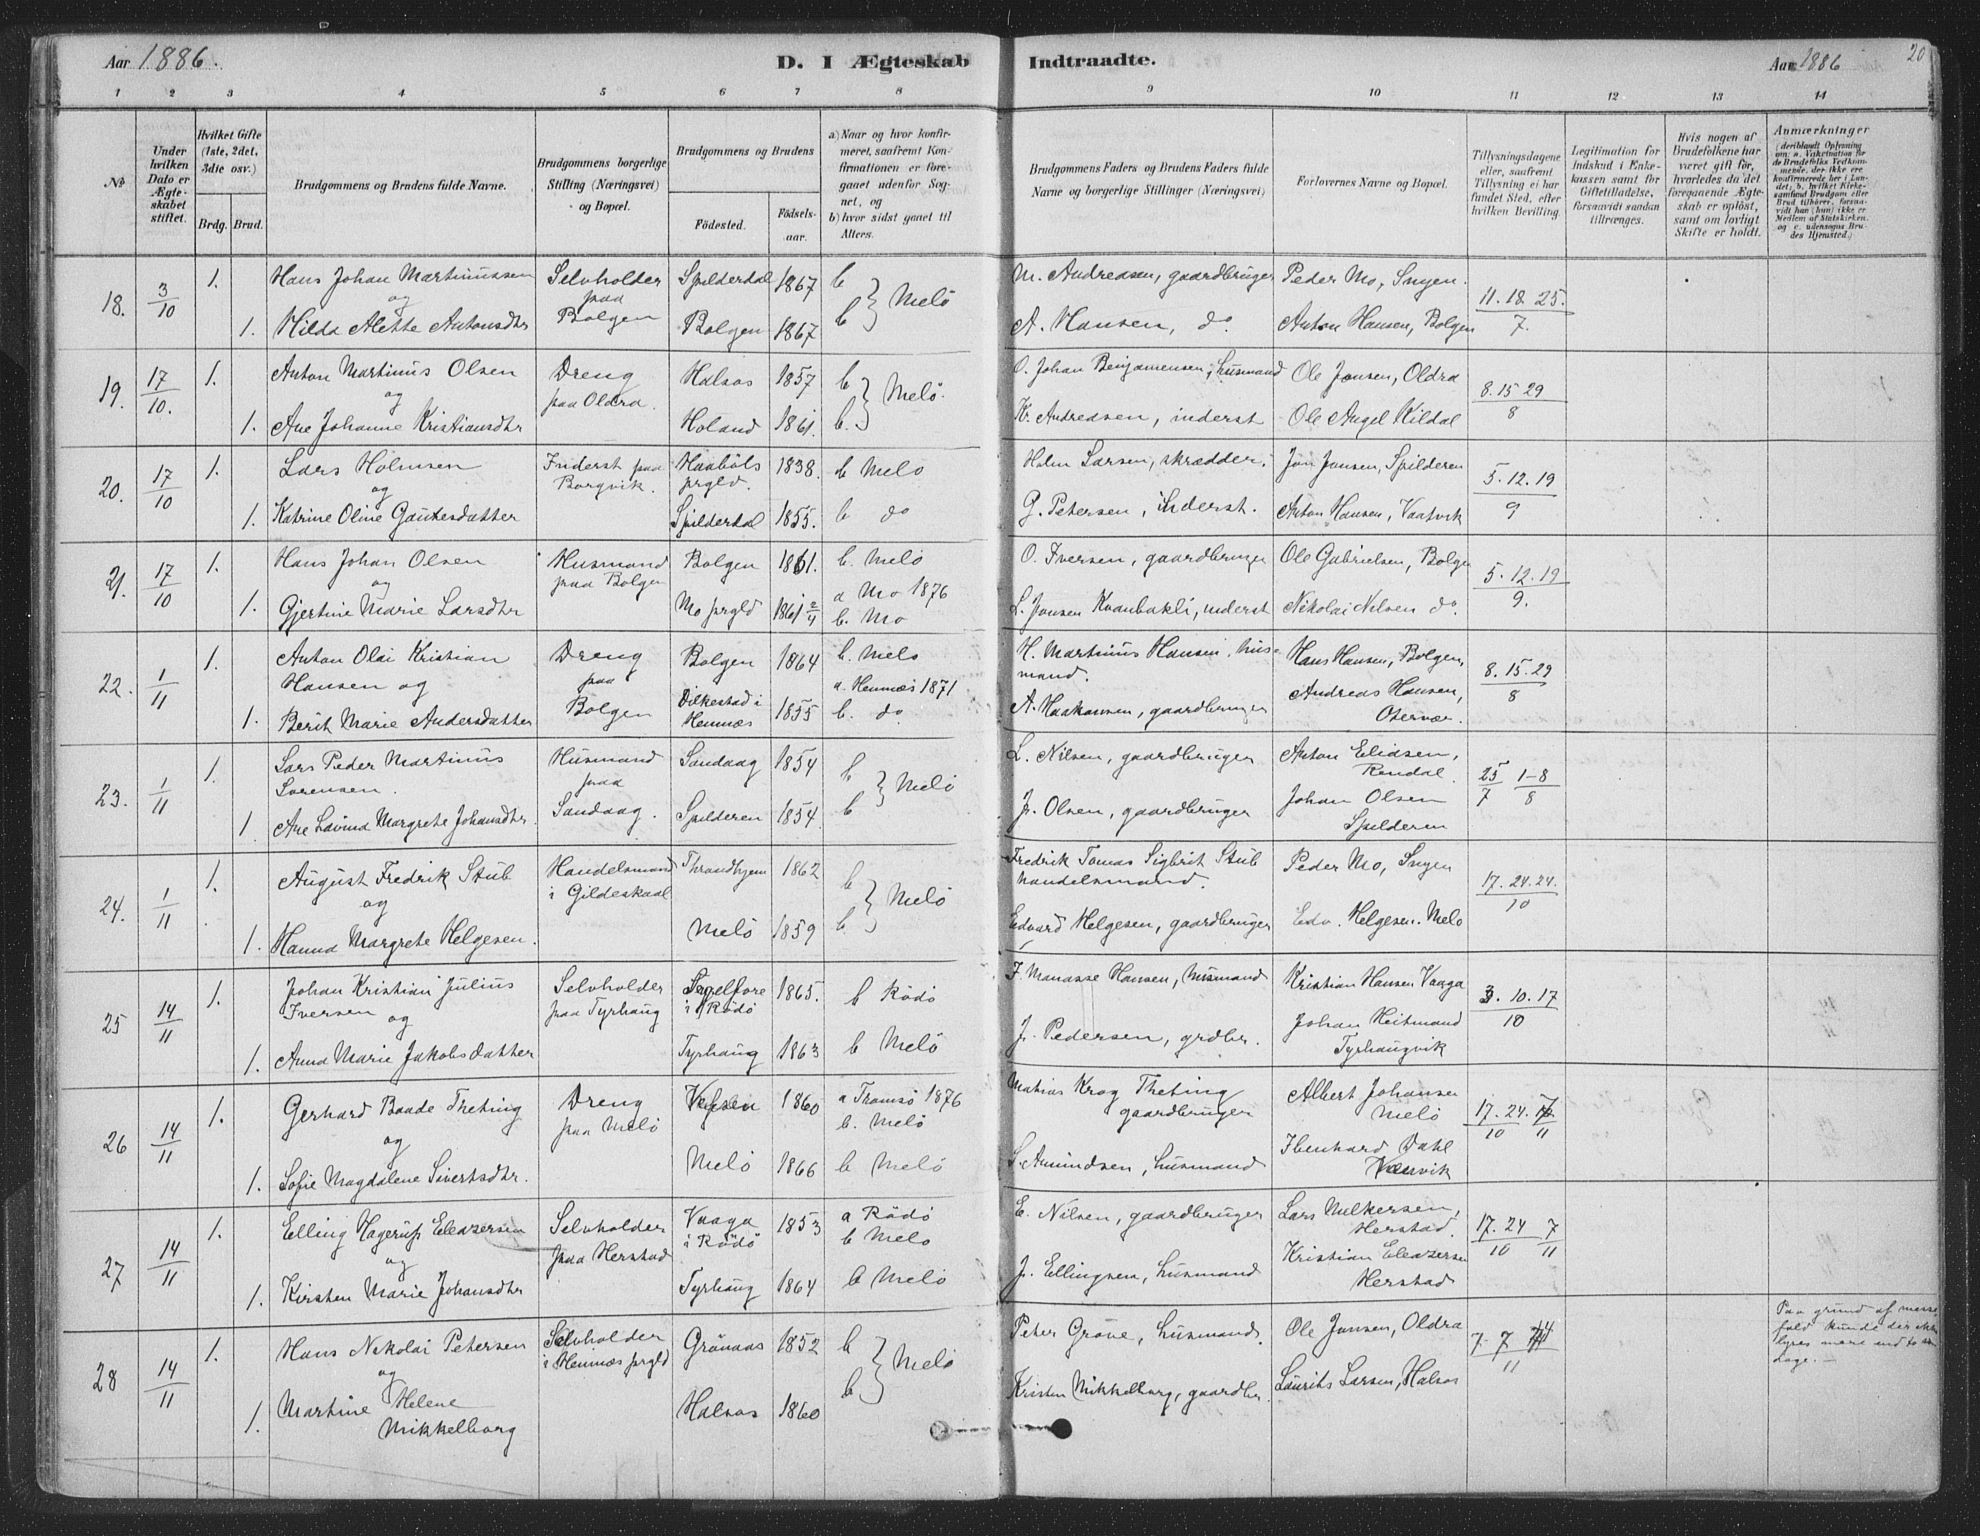 Aar 1886.
D. I Ægteskab Indtraadte.
Aar 1886
20
1 2 3 4 5 6 7 8 9 10 11 12 13 14
No
Under hvilken Dato er Ægteskabet stiftet.
Hvilket Gifte (1ste, 2det, 3die osv.)
Brdg. Brud.
Brudgommens og Brudens fulde Navne.
Brudgommens borgerlige Stilling (Næringsvei) og Bopæl.
Brudgommens og Brudens
Fødested.
Fødselsaar.
a) Naar og hvor konfirmeret, saafremt Konfirmationen er foregaaet udenfor Sognet, og
b) hvor sidst gaaet til Alters.
Brudgommens Faders og Brudens Faders fulde Navne og borgerlige Stillinger (Næringsvei)
Forlovernes Navne og Bopæl.
Tillysningsdagene eller, saafremt Tillysning ei har fundet Sted, efter hvilken Bevilling.
Legitimation for Indskud i Enkekassen samt for Giftetilladelse, forsaavidt saadan tiltrænges.
Hvis nogen af Brudefolkene har været gift før, hvorledes da det foregaaende Ægteskab er opløst, samt om lovligt Skifte er holdt.
Anmærkninger
18. 3/10 1. Hans Johan Martinussen Selvholder Spilderdal 1867 b } Melö M. Andreasen, gaardbruger Peder Mo, Snyen. 11. 18. 25./7.
og paa Bolgen
1. Hilda Alette Antonsdtr Bolgen 1867 b A. Hansen, do. Anton Hansen, Bolgen
19. 17/10. 1. Anton Martinus Olsen Dreng Halsos 1857 b. } Melö. O. Johan Benjamensen, husmand Ole Jonsen, Oldra 8. 15 29/8
og paa Oldra.
1. Ane Johanne Kristiansdtr Holand 1861. b. Kr. Andreasen, inderst Ole Angel Kildal
20. 17/10 1. Lars Holmsen Inderst paa Borgvik. prgld. 1838. b Melö Holm Larsen, skrædder. Jon Jonsen, Spilderen 5. 12. 19/9
og
1. Katrine Oline Gautesdatter Spilderdal 1855. b do G. Petersen, inderst. Anton Hansen, Vaatvik
21. 17/10 1. Hans Johan Olsen Husmand paa Bolgen Bolgen 1861. b. Melö O. Iversen, gaardbruger Ole Gabrielsen, Bolgen 5. 12. 19/9.
og a Mo 1876
1. Gjertine Marie Larsdtr Mo prgld 1861 2/4 b. Mo L. Jonsen Kvanbakli, inderst Nikolai Nilsen do.
22. 1/11 1. Anton Olai Kristian Hansen og Dreng paa Bolgen Bolgen 1864 b. Melö H. Martinus Hansen, husmand. Hans Hansen, Bolgen, 8. 15. 29/8
a. Hemnæs 1871 Andreas Hansen,
1. Berit Marie Andersdatter Dilkestad i Hemnæs 1855 b. do. A. Haakonsen, gaardbruger
23. 1/11 1. Lars Peder Martinus Sorensen. Husmand paa Sandaag. Sandaag 1854 b } Melö L. Nilsen, gaardbruger Anton Eliasen, Rendal. 25/7 1-8/8
1 Ane Lovina Margrete Johansdtr. Spilderen 1854. b J. Olsen, gaardbruger Johan Olsen Spilderen
24. 1/11 1. August Fredrik Stub Handelsmand i Gildeskaal Throndhjem 1862 b } Melö Fredrik Tomas Sigbrit Stub handelsmand. Peder Mo, Snyen 17. 24. 24./10
og
1. Hanna Margrete Helgesen. Melö 1859 b Edvard Helgesen, gaardbruger Edv. Helgesen. Melö
25 14/11 1. Johan Kristian Julius Iversen og Selvholder paa Tyrhaug i Rödö 1865. b Rödö I. Manasse Hansen, husmand Kristian Hansen Vaaga 3. 10. 17/10
1. Anna Marie Jakobsdatter Tyrhaug 1863 b Melö J. Pedersen, grdbr. Johan Heitmand Tyrhaugvik
26 14/11 1. Gerhard Baade Theting Dreng paa Melö Vefsen 1860 a Tromsö 1876 b. Melö Mathias Krog Theting gaardbruger Albert Johansen Melö 17. 24./10 7/11
og
1. Sofie Magdalene Sivertsdtr. Melö 1866 b Melö S. Amundsen, husmand Ibenhard Dahl Værvik
27 14/11 1. Elling Hagerup Eleazersen Selvholder paa Herstad Vaaga i Rödö 1853 a Rödö b Melö E. Nilsen, gaardbruger Lars Mulkersen, Herstad. 17. 24/10 7/11
og
1. Kirsten Marie Johansdtr Tyrhaug 1864 b Melö J. Ellingsen, husmand Kristian Eleazersen Herstad
28 14/11 1. Hans Nikolai Petersen Selvholder i Hemnæs prgld Grönaas 1852 b } Melö Peter Gröve, husmand. Ole Jonsen, Oldra 7. 7 14/11 Paa grund af messefald kunde der ikke lyses mere end to
og
1. Martine Helene Mikkelborg Halsos 1860 b Kristen Mikkelborg, gaardbr. Laurits Larsen, Halsos